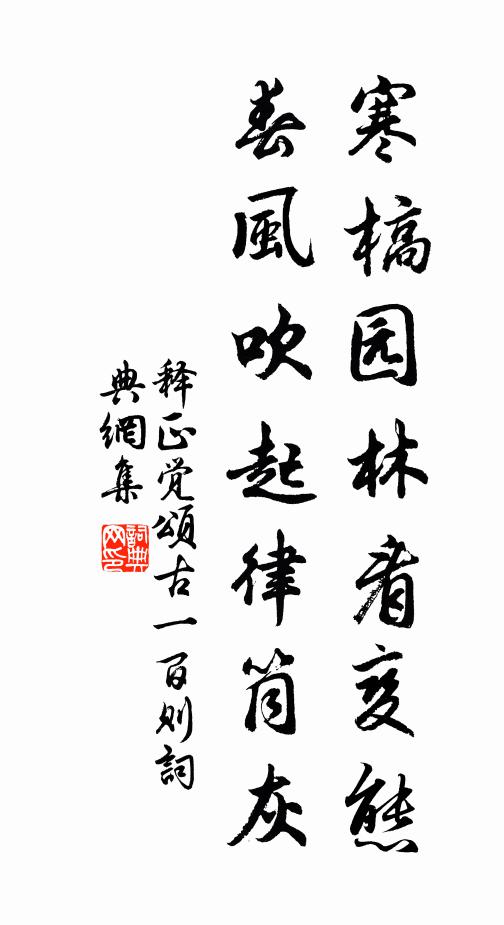 寒槁园林看变態
春風吹起律筒灰
释正觉頌古一百则詞
典網集
詞典
网印